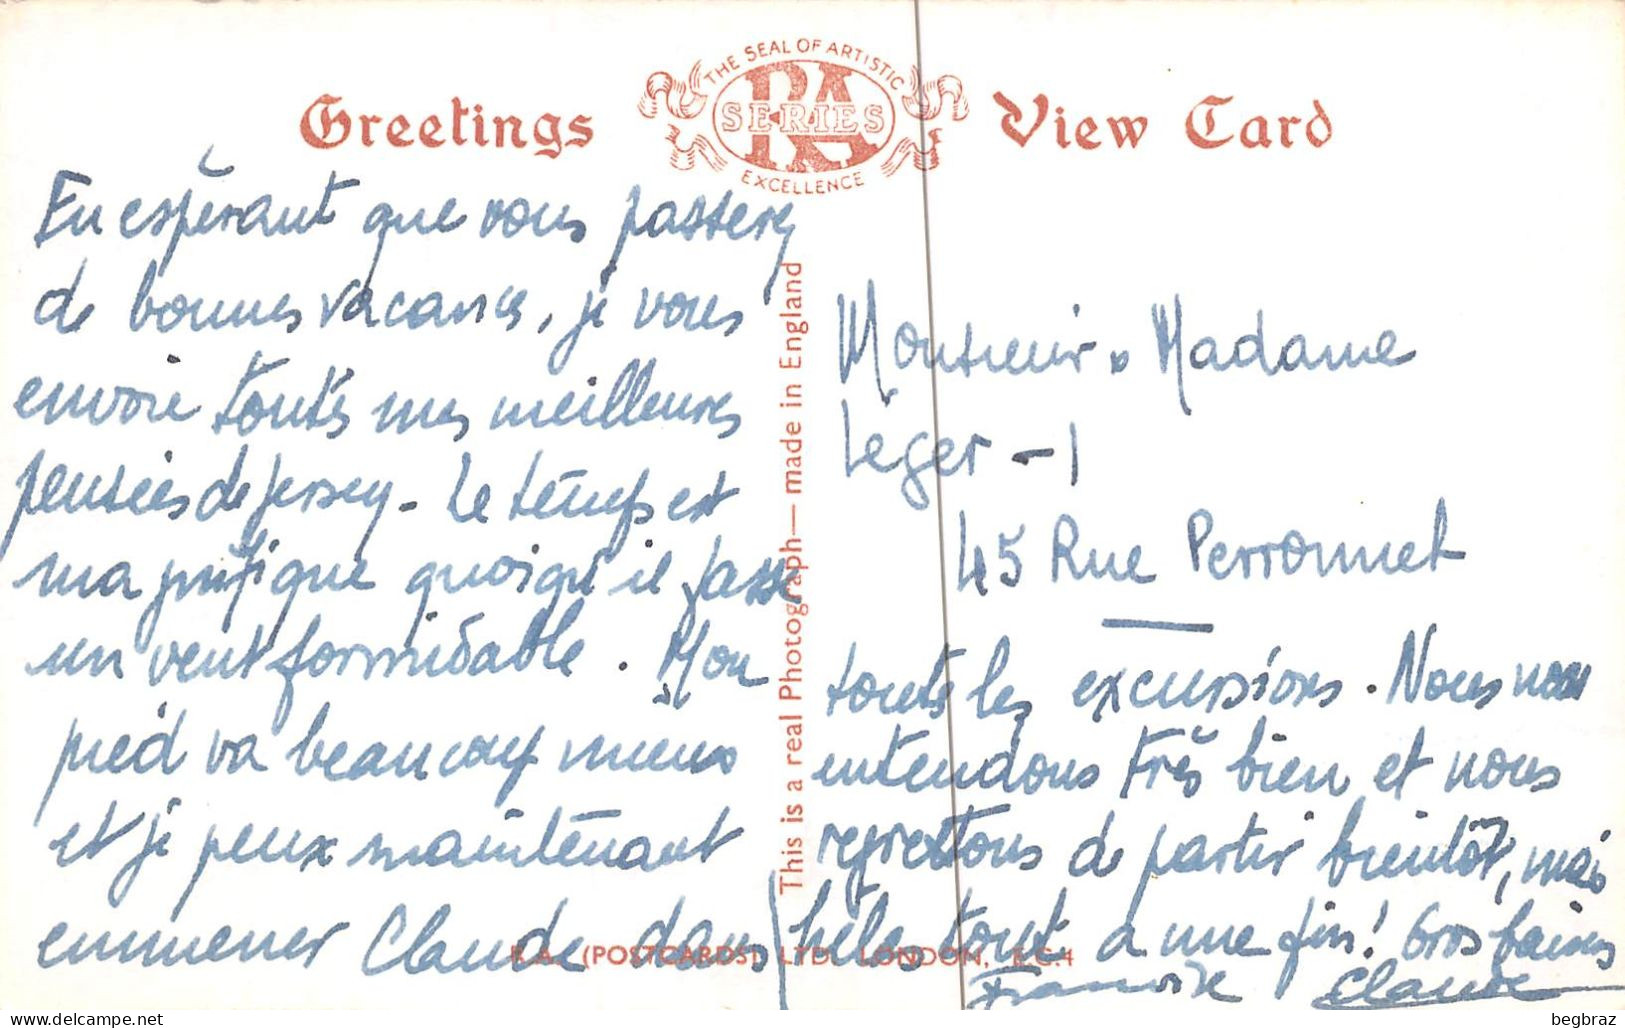 THE SEAL OF ARTISTIC
RA
SERIES
EXCELLENCE
Greetings
View Card
En espérant que vous passerez
de bonnes vacances, je vous
envoie toutes mes meilleures
pensées de Jersey - Le temps est
magnifique quoiqu'il fasse
un vent formidable. Mon
pied va beaucoup mieux
et je peux maintenant
emmener Claude dans
This is a real Photograph — made in England
Monsieur Madame
Léger - 1
45 Rue Perronnet
toutes les excursions. Nous nous
entendons très bien et nous
regrettons de partir bientôt, mais
hélas tout a une fin! Gros baisers
Françoise Claude
R.A. (POSTCARDS) LTD. LONDON, E.C.4
begbraz